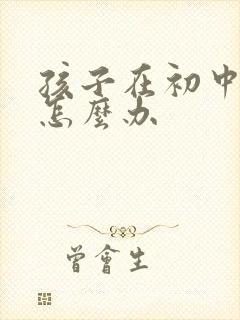 孩子在初中
怎麼办
曾會生